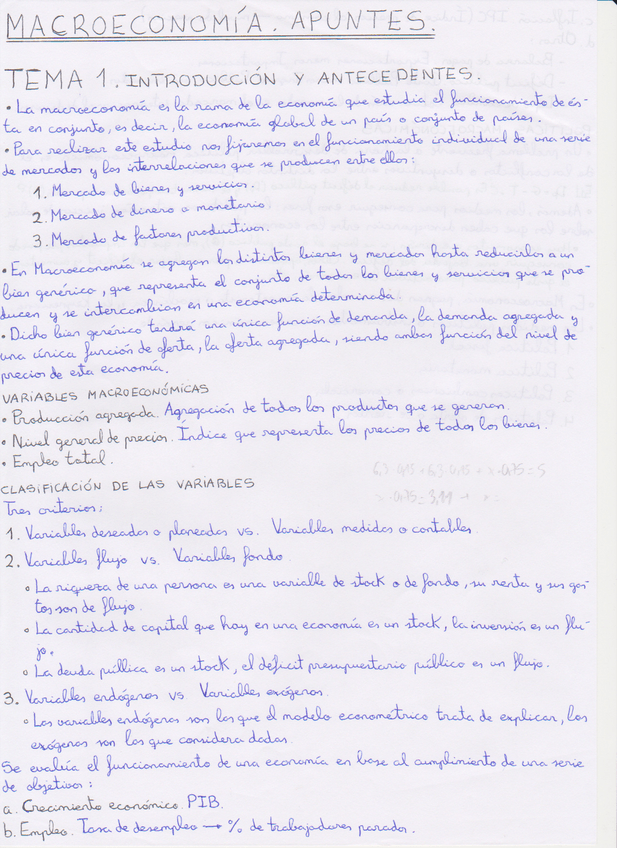 MACROECONOMÍA. APUNTES.
TEMA 1. INTRODUCCIÓN Y ANTECEDENTES.
• La macroeconomía es la rama de la economía que estudia el funcionamiento de és-
ta en conjunto, es decir, la economía global de un país o conjunto de países.
• Para realizar este estudio nos fijaremos en el funcionamiento individual de una serie
de mercados y las interrelaciones que se producen entre ellos:
1. Mercado de bienes y servicios.
2. Mercado de dinero o monetario
3. Mercado de factores productivos.
• En Macroeconomía se agregan los distintos bienes y mercados hasta reducirlos a un
bien genérico, que representa el conjunto de todos los bienes y servicios que se pro-
ducen y se intercambian en una economía determinada.
• Dicho bien genérico tendrá una única función de demanda, la demanda agregada y
una única función de oferta, la oferta agregada, siendo ambas función del nivel de
precios de esta economía.
VARIABLES MACROECONÓMICAS
• Producción agregada. Agregación de todos los productos que se generan.
• Nivel general de precios. Índice que representa los precios de todos los bienes.
• Empleo total.
CLASIFICACIÓN DE LAS VARIABLES
Tres criterios:
1. Variables deseadas o planeadas vs. Variables medidas o contables.
2. Variables flujo vs. Variables fondo.
• La riqueza de una persona es una variable de stock o de fondo, su renta y sus gas-
tos son de flujo.
• La cantidad de capital que hay en una economía es un stock, la inversión es un flu-
jo.
• La deuda pública es un stock, el deficit presupuestario público es un flujo.
3. Variables endógenas vs Variables exógenas.
• Las variables endógenas son las que el modelo econometrico trata de explicar, las
exógenas son las que considera dadas.
Se evalúa el funcionamiento de una economía en base al cumplimiento de una serie
de objetivos:
a. Crecimiento económico. PIB.
b. Empleo. Tasa de desempleo → % de trabajadores parados.